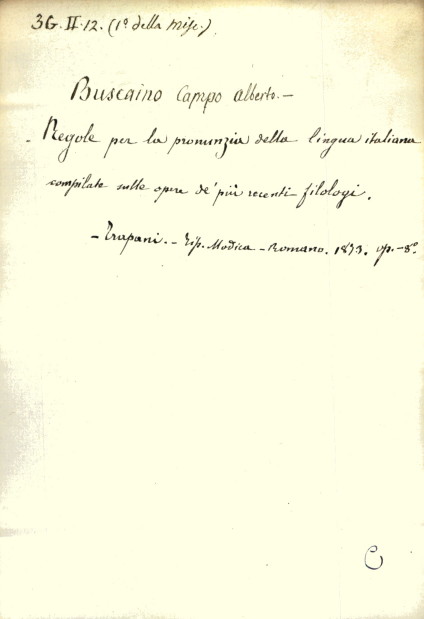 3G. II. 12. (1º della misc.)
Buscaino Campo Alberto. —
- Regole per la pronunzia della lingua italiana
compilate sulle opere de' più recenti filologi.
- Trapani. - Tip. Modica - Romano. 1873. op. - 8º.
C